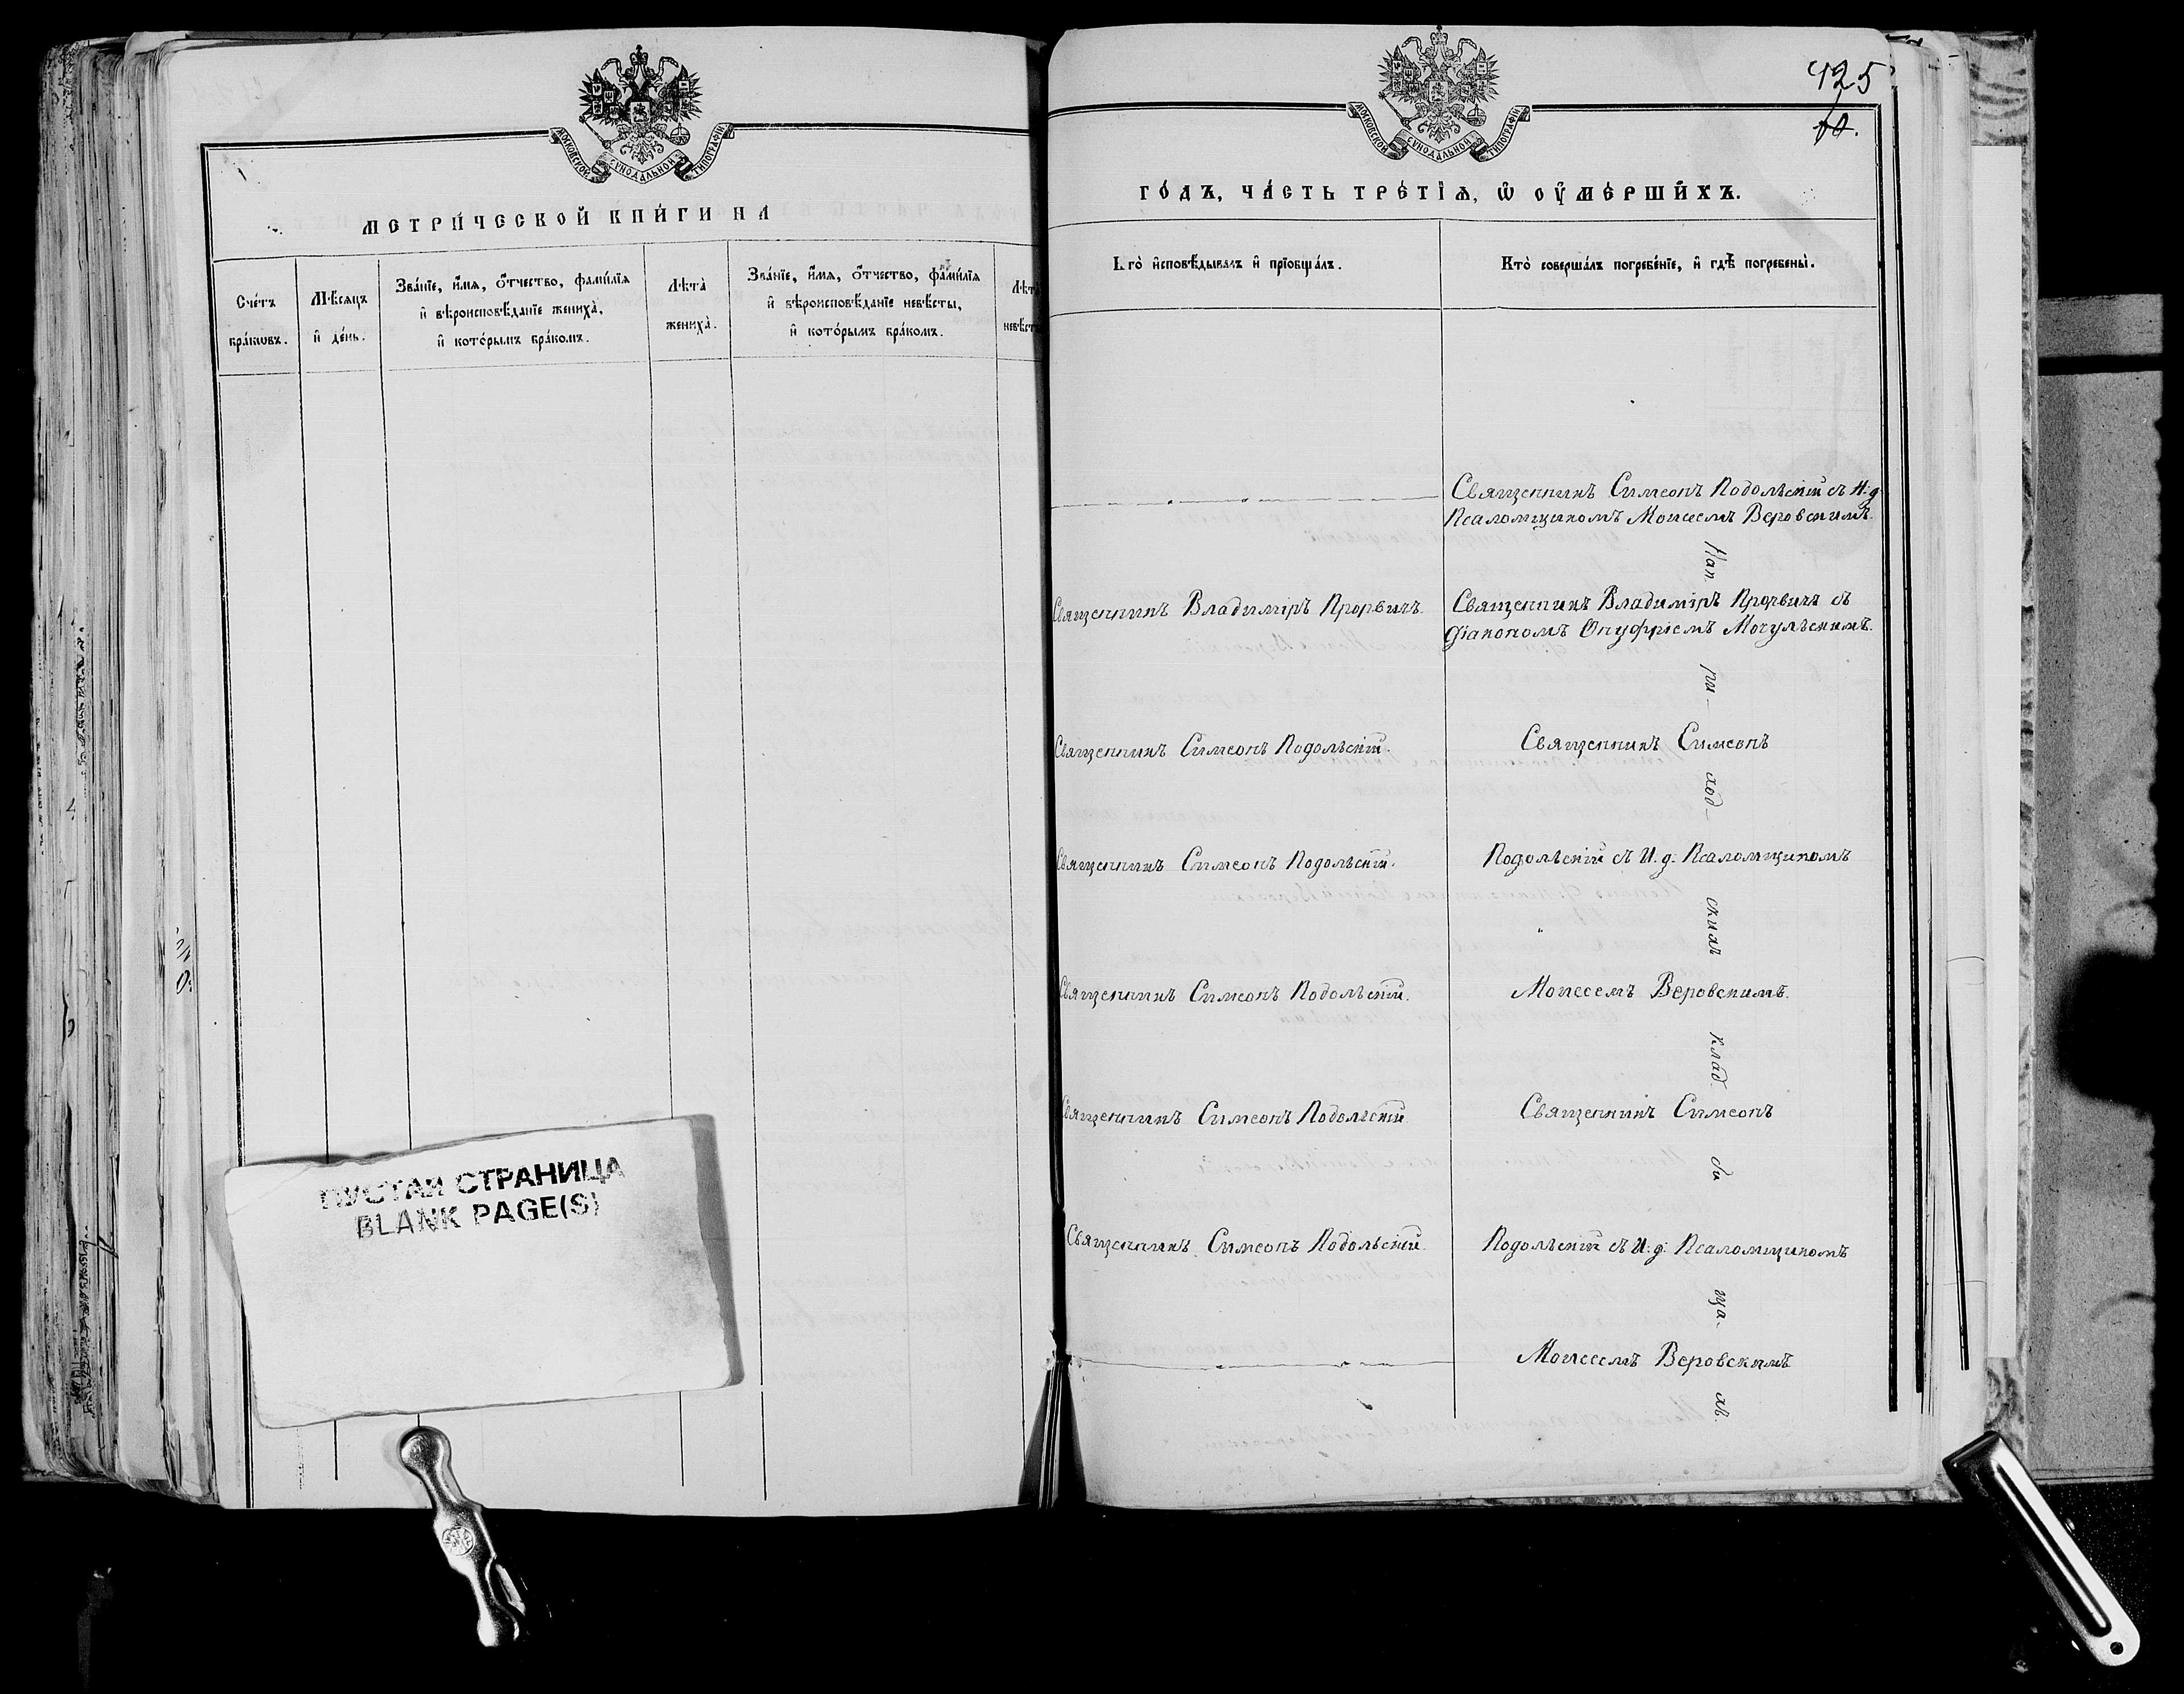 МОСКОВСКОЙ СУНОДАЛЬНОЙ ТИПОГРАФІИ
МЕТРИ́ЧЕСКОЙ КНИ́ГИ НА
Сче́тъ бра́кѡвъ.
Мѣ́сяцъ и҆ де́нь.
Зва́нїе, и҆́мѧ, ѻ҆́тчество, фами́лїѧ
и҆ вѣроисповѣ́данїе жениха̀,
и҆ кото́рымъ бра́комъ.
Лѣта̀ жениха̀.
Зва́нїе, и҆́мѧ, ѻ҆́тчество, фами́лїѧ
и҆ вѣроисповѣ́данїе невѣ́сты,
и҆ кото́рымъ бра́комъ.
ПУСТАЯ СТРАНИЦА
BLANK PAGE(S)
425
МОСКОВСКОЙ СУНОДАЛЬНОЙ ТИПОГРАФІИ
ГО́ДЪ, ЧА́СТЬ ТРЕ́ТЇѦ, Ѡ҆ ОУ҆МЕ́РШИХЪ.
и҆сповѣ́дывалъ и҆ прїобща́лъ.
Кто̀ соверша́лъ погребе́нїе, и҆ гдѣ̀ погребены̀.
Священникъ Симеонъ Подольскій съ И. д.
Псаломщикомъ Моисеемъ Веровскимъ.
Священникъ Владиміръ Прорвичъ.
Священникъ Владиміръ Прорвичъ съ
Діакономъ Онуфріемъ Мочульскимъ.
Священникъ Симеонъ Подольскій.
Священникъ Симеонъ
Священникъ Симеонъ Подольскій.
Подольскій съ И. д. Псаломщикомъ
Священникъ Симеонъ Подольскій.
Моисеемъ Веровскимъ.
Священникъ Симеонъ Подольскій
Священникъ Симеонъ
Священникъ Симеонъ Подольскій.
Подольскій съ И. д. Псаломщикомъ
Моисеемъ Веровскимъ
На
при
ход
скихъ
клад
би
ща
хъ.